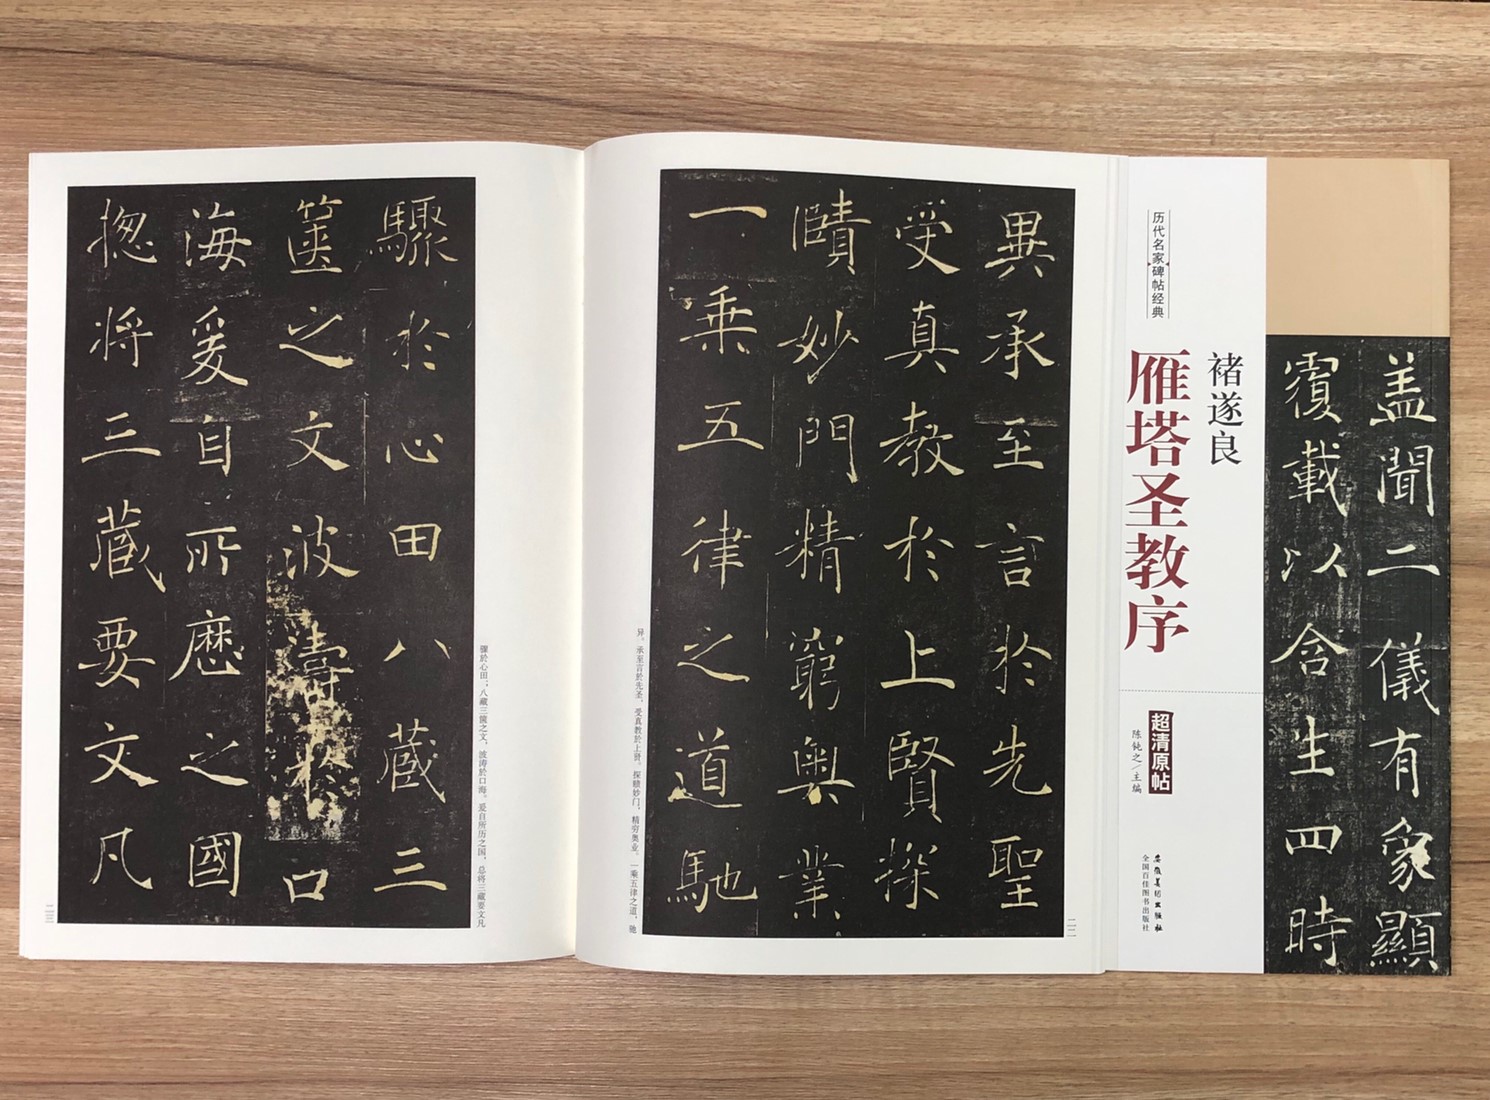 驟於心田八藏三
篋之文波濤於口
海爰自所歷之國
揔将三藏要文凡
骤於心田；八藏三箧之文，波涛於口海。爰自所历之国，总将三藏要文凡
二三
異承至言於先聖
受真教於上賢探
賾妙門精窮奥業
一乗五律之道馳
异。承至言於先圣，受真教於上贤。探赜妙门，精穷奥业。一乘五律之道，驰
二二
历代名家碑帖经典
褚遂良
雁塔圣教序
超清原帖
陈钝之/主编
安徽美术出版社
全国百佳图书出版社
盖聞二儀有象顯
覆載以含生四時